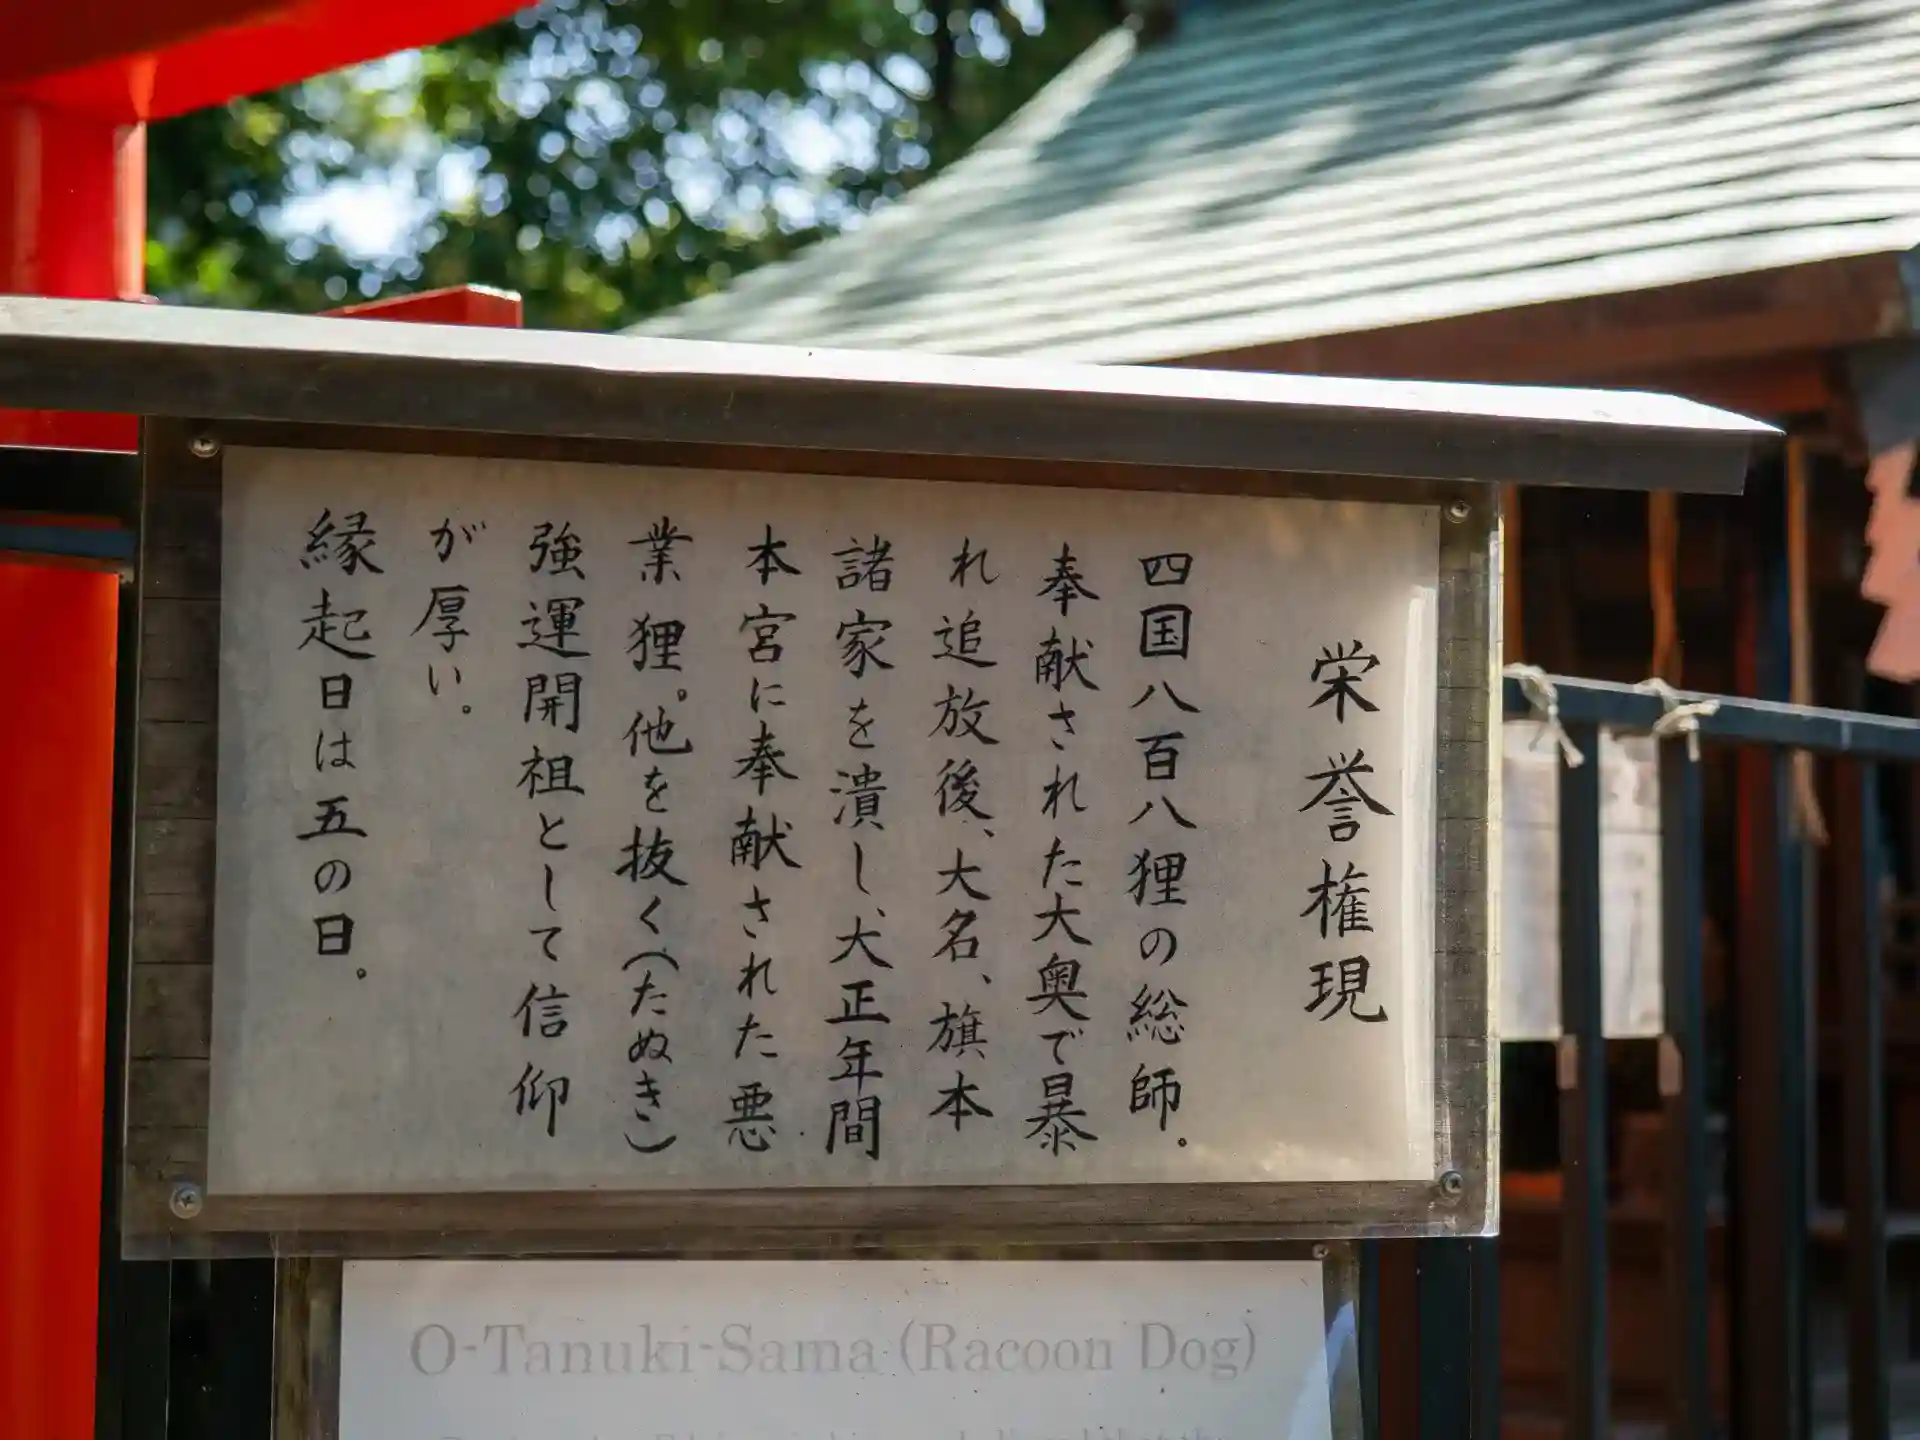 栄誉権現
四国八百八狸の総師。
奉献された大奥で暴
れ追放後、大名、旗本
諸家を潰し、大正年間
本宮に奉献された悪
業狸。他を抜く(たぬき)
強運開祖として信仰
が厚い。
縁起日は五の日。
O-Tanuki-Sama (Racoon Dog)